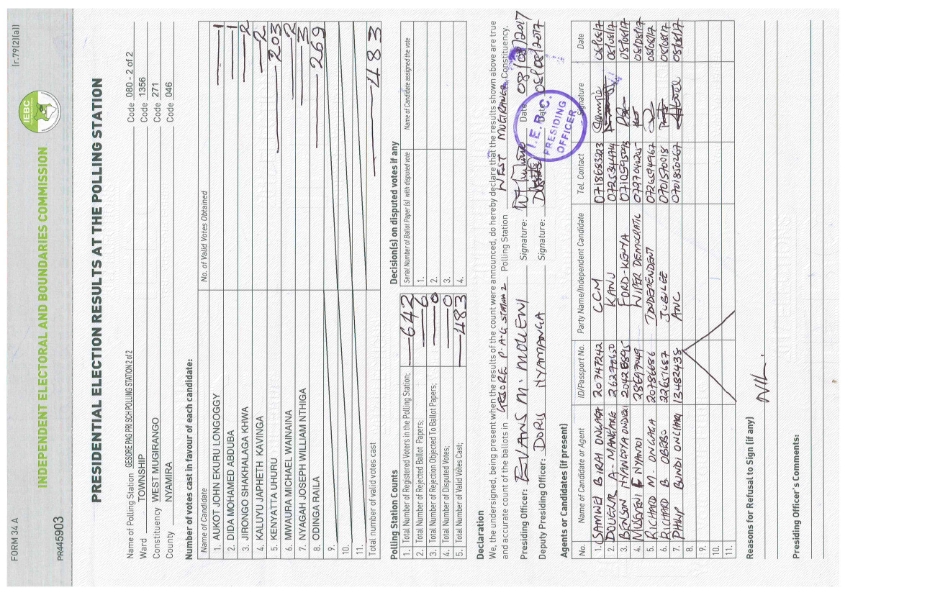 FORM 34 A
INDEPENDENT ELECTORAL AND BOUNDARIES COMMISSION
IEBC
[r.79(2)(a)]
PR445903
PRESIDENTIAL ELECTION RESULTS AT THE POLLING STATION
Name of Polling Station GESORE PAG PRI SCH POLLING STATION 2 of 2 Code 080 - 2 of 2
Ward TOWNSHIP Code 1356
Constituency WEST MUGIRANGO Code 271
County NYAMIRA Code 046
Number of votes cast in favour of each candidate:
Name of Candidate No. of Valid Votes Obtained
1. AUKOT JOHN EKURU LONGOGGY 1
2. DIDA MOHAMED ABDUBA 1
3. JIRONGO SHAKHALAGA KHWA 2
4. KALUYU JAPHETH KAVINGA 2
5. KENYATTA UHURU 203
6. MWAURA MICHAEL WAINAINA 2
7. NYAGAH JOSEPH WILLIAM NTHIGA 3
8. ODINGA RAILA 269
9.
10.
11.
Total number of valid votes cast 483
Polling Station Counts
1. Total Number of Registered Voters in the Polling Station; 642
2. Total Number of Rejected Ballot Papers; 6
3. Total Number of Rejection Objected To Ballot Papers; 0
4. Total Number of Disputed Votes; 0
5. Total Number of Valid Votes Cast; 483
Decision(s) on disputed votes if any
Serial Number of Ballot Paper (s) with disputed vote Name of Candidate assigned the vote
1.
2.
3.
4.
Declaration
We, the undersigned, being present when the results of the count were announced, do hereby declare that the results shown above are true
and accurate count of the ballots in GESORE P.A.G STATION 2 Polling Station WEST MUGIRANGO Constituency.
Presiding Officer: EVANS M. MOKENI Signature: Date 08/08/2017
Deputy Presiding Officer: DORIS NYAMANGA Signature: Date 08/08/2017
I.E.B.C.
PRESIDING
OFFICER
Agents or Candidates (if present)
Name of Candidate or Agent ID/Passport No. Party Name/Independent Candidate Tel. Contact Signature Date
1. SAMWEL 20747242 CCM 08/08/17
2. KANU 08/08/17
3. BENSON FORD-KENYA 08/08/17
4. WIPER DEMOCRATIC 08/08/17
5. RICHARD M. ONGAGA 20786686 INDEPENDENT 08/08/17
6. RICHARD B. JUBILEE 08/08/17
7. 13482435 ANC 08/08/17
8.
9.
10.
11.
Reasons for Refusal to Sign (if any)
NIL.
Presiding Officer's Comments: